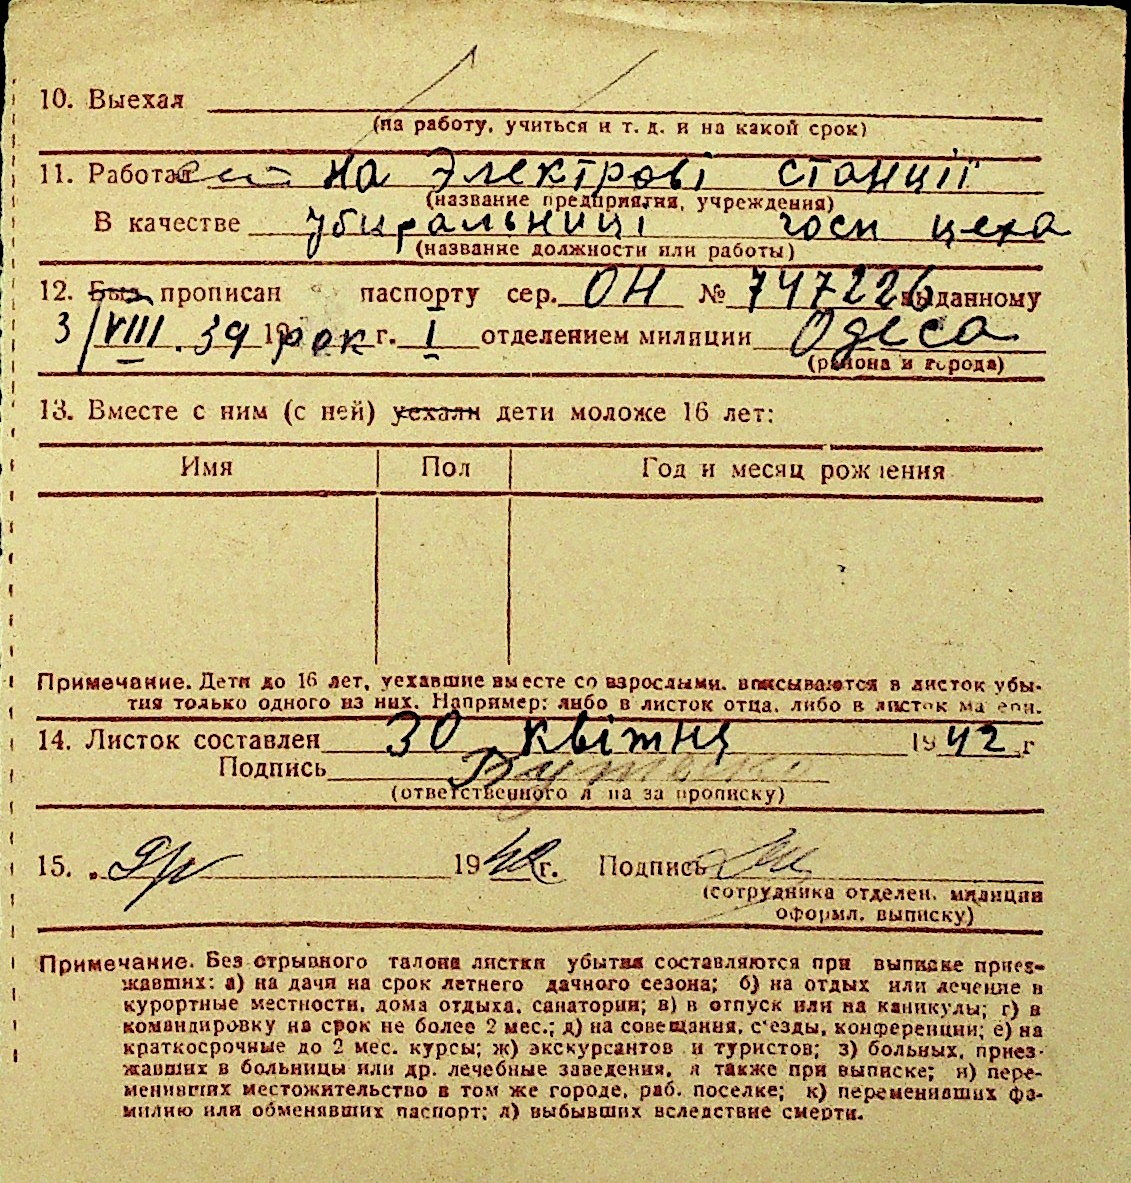 10. Выехал
(на работу, учиться и т. д. и на какой срок)
11. Работал на Электрові станції
(название предприятия, учреждения)
В качестве убиральниці госп цеха
(название должности или работы)
12. Был прописан паспорту сер. ОН № 747226 выданному
3/VIII.39 19 рок г. I отделением милиции Одеса
(района и города)
13. Вместе с ним (с ней) уехали дети моложе 16 лет:
Имя Пол Год и месяц рождения
Примечание. Дети до 16 лет, уехавшие вместе со взрослыми, вписываются в листок убы-
тия только одного из них. Например: либо в листок отца, либо в листок матери.
14. Листок составлен 30 квітня 1942 г
Подпись
(ответственного лица за прописку)
15. 1942 г. Подпись
(сотрудника отделен. милиции
оформл. выписку)
Примечание. Без отрывного талона листки убытия составляются при выписке приез-
жавших: а) на дачи на срок летнего дачного сезона; б) на отдых или лечение в
курортные местности, дома отдыха, санатории; в) в отпуск или на каникулы; г) в
командировку на срок не более 2 мес.; д) на совещания, с'езды, конференции; е) на
краткосрочные до 2 мес. курсы; ж) экскурсантов и туристов; з) больных, приез-
жавших в больницы или др. лечебные заведения, а также при выписке; и) пере-
менивших местожительство в том же городе, раб. поселке; к) переменивших фа-
милию или обменявших паспорт; л) выбывших вследствие смерти.